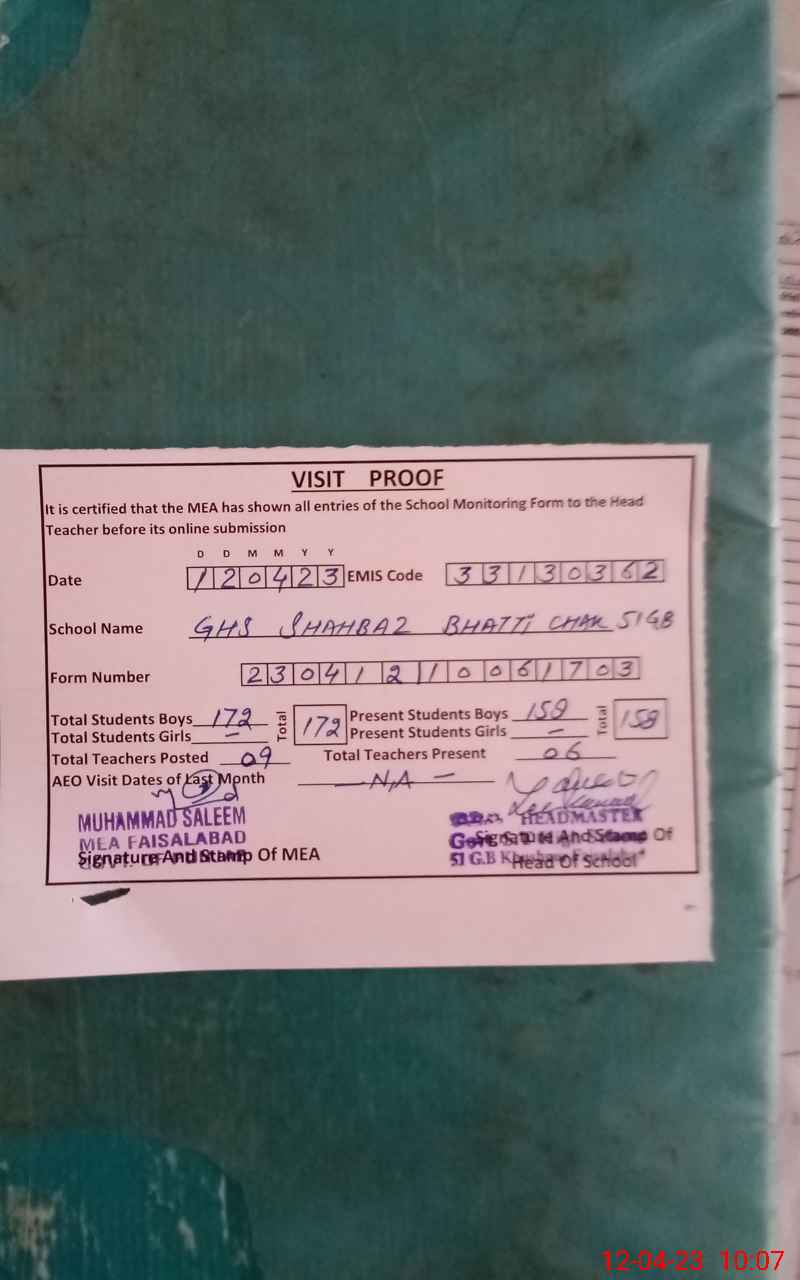 VISIT PROOF
It is certified that the MEA has shown all entries of the School Monitoring Form to the Head
Teacher before its online submission
D D M M Y Y
Date 120423 EMIS Code 33130362
School Name GHS SHAHBAZ BHATTI CHAK 51GB
Form Number 23041210061703
Total Students Boys 172 Total 172 Present Students Boys 158 Total 158
Total Students Girls – Present Students Girls –
Total Teachers Posted 09 Total Teachers Present 06
AEO Visit Dates of Last Month N,A –
MUHAMMAD SALEEM HEADMASTER
MEA FAISALABAD
Signature And Stamp Of MEA Signature And Stamp Of
51 G.B Head Of School
12-04-23 10:07